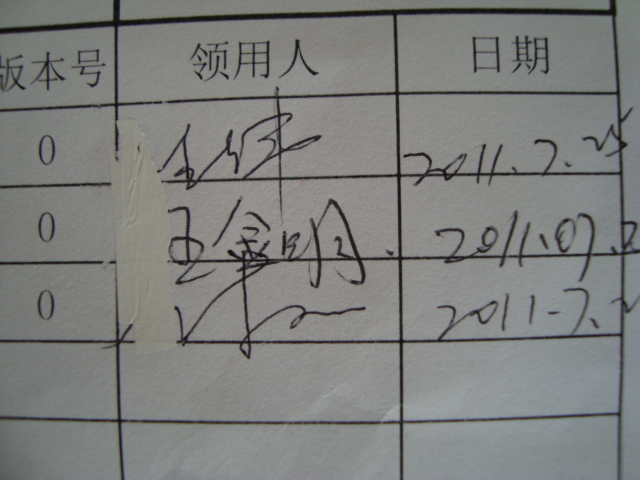 版本号 领用人 日期
0 2011.7.25
0 王金明. 2011.07.2
0 2011-7.2